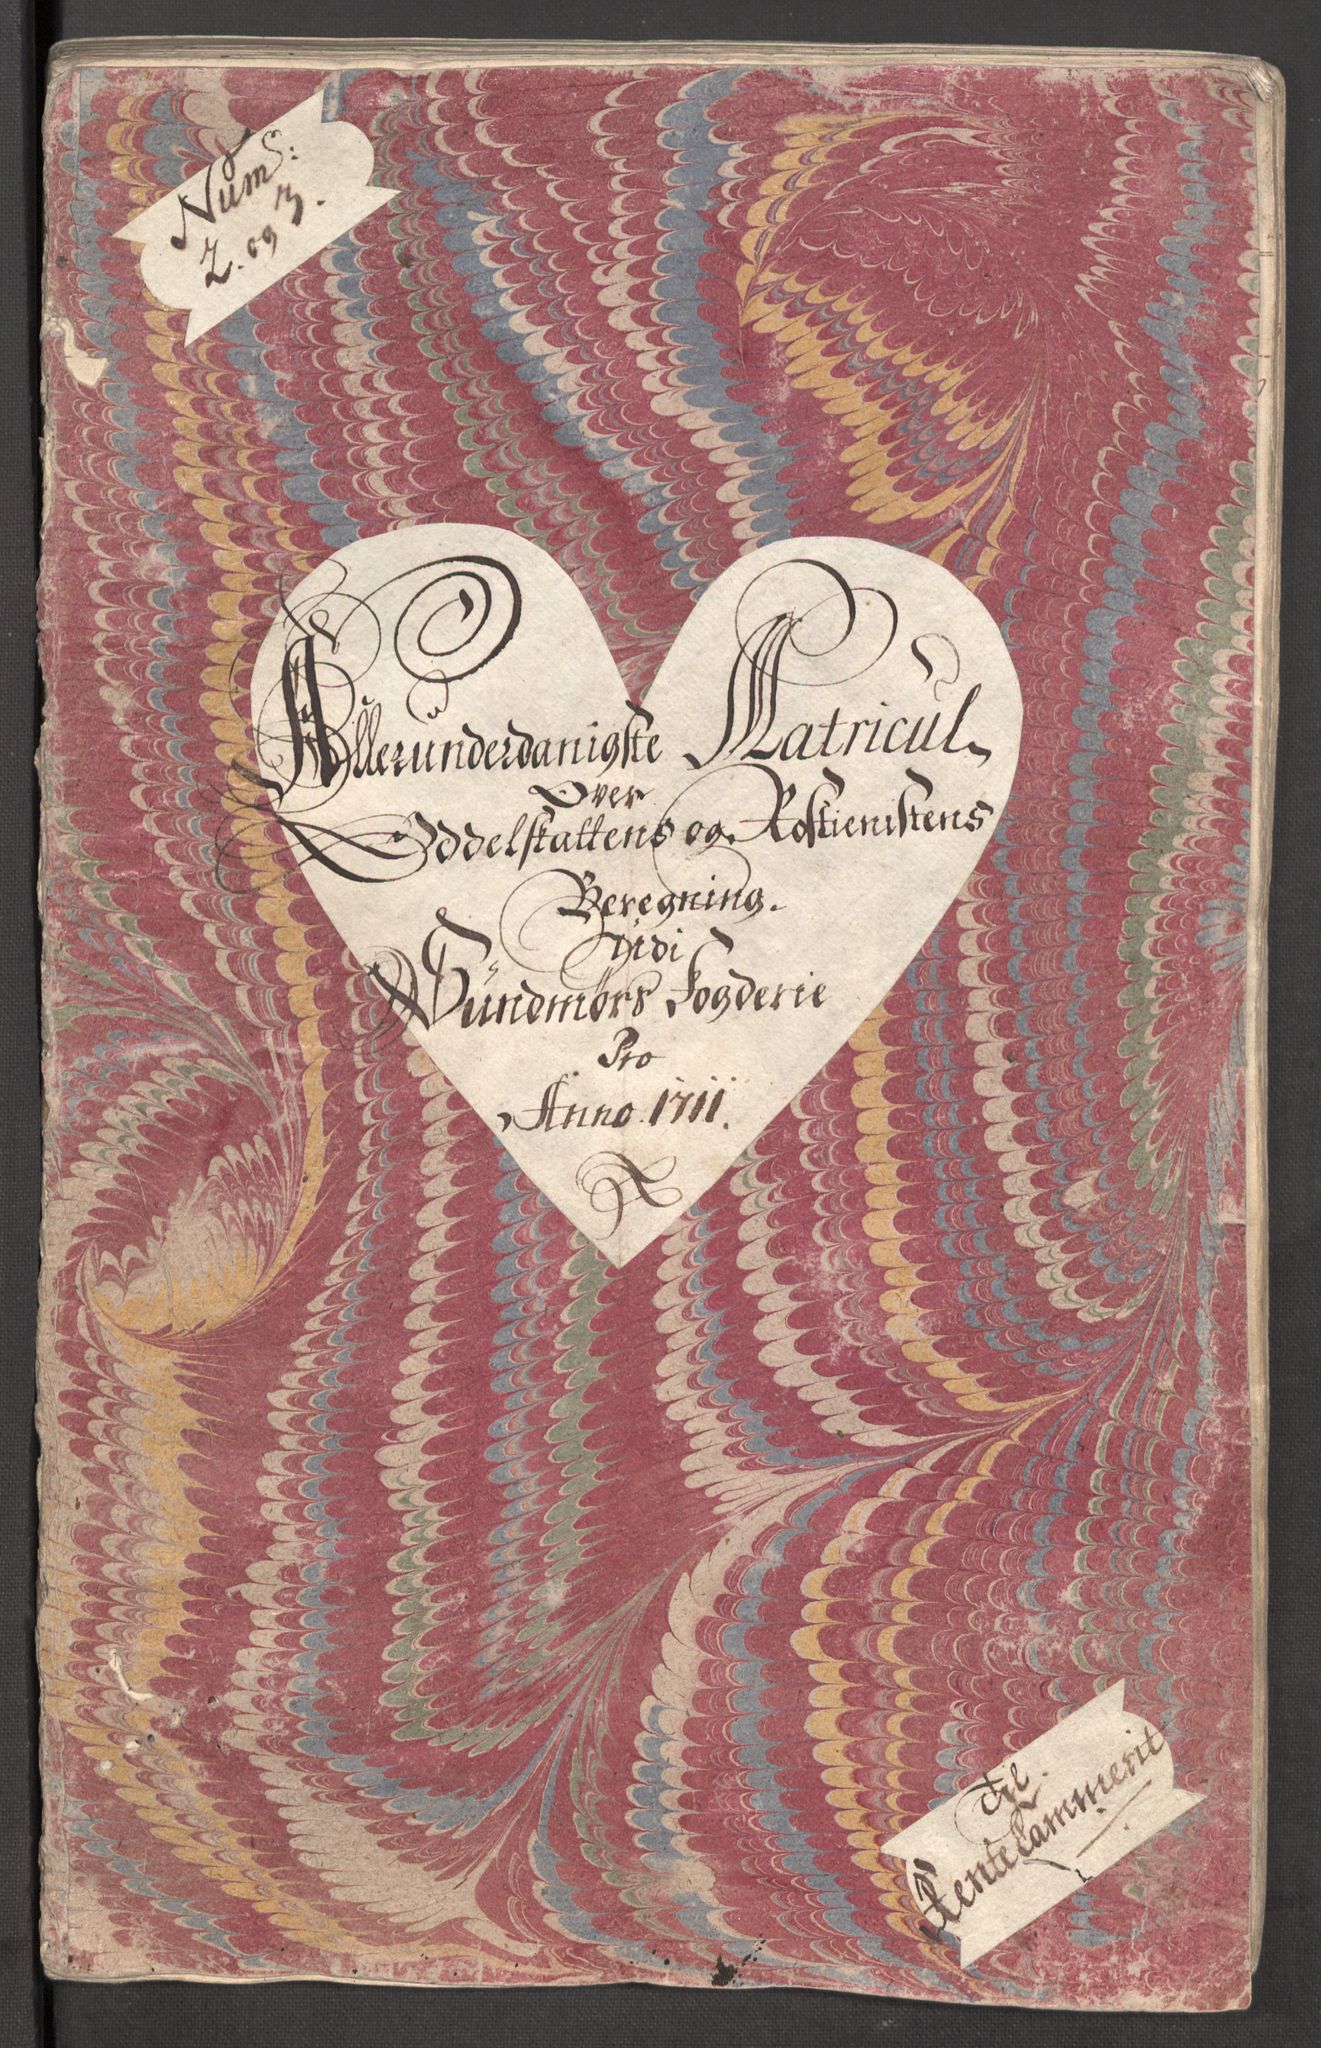 Num̃:
2. og 3.
Allerunderdanigste Matricul
Over
Oddelskattens og Rostienistens
Beregning.
Udi
Sündmörs Fogderie
Pro
Anno 1711.
Til
Rentekammerit